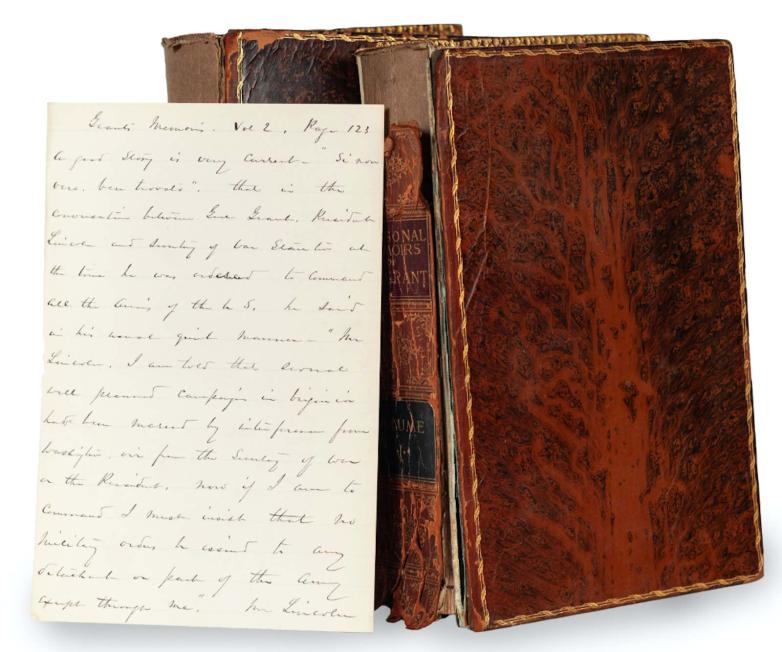 Grants Memoirs. Vol 2. Page 123
A good Story is very Current - "Si non
vero, ben trovato". that in the
conversation between Genl Grant, President
Lincoln and Secretary of War Stanton at
the time he was ordered to Command
all the Armies of the U.S. he said
in his usual quiet manner - "Mr
Lincoln. I am told that several
well planned Campaigns in Virginia
have been marred by interference from
Washington, either from the Secretary of War
or the President. Now if I am to
Command I must insist that no
Military orders be issued to any
detachment or part of this Army
except through me." Mr Lincoln
ONAL
MOIRS
OF
GRANT
UME
I